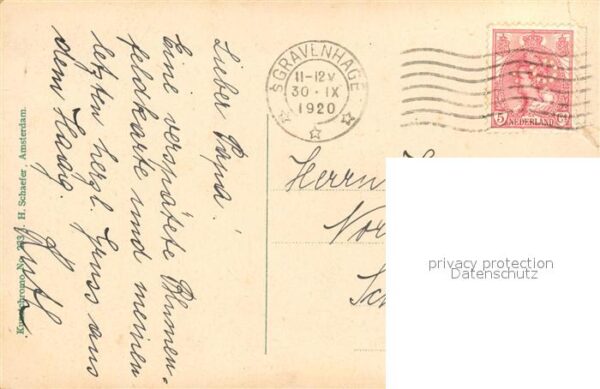 Lieber Papa!
Eine verspätete Blumen-
feldkarte und meinen
letzten herzl. Gruss aus
dem Haag.
Ruth
H. Schaefer. Amsterdam.
'SGRAVENHAGE
11-12V
30·IX
1920
5 Ct
NEDERLAND
Herrn
privacy protection
Datenschutz